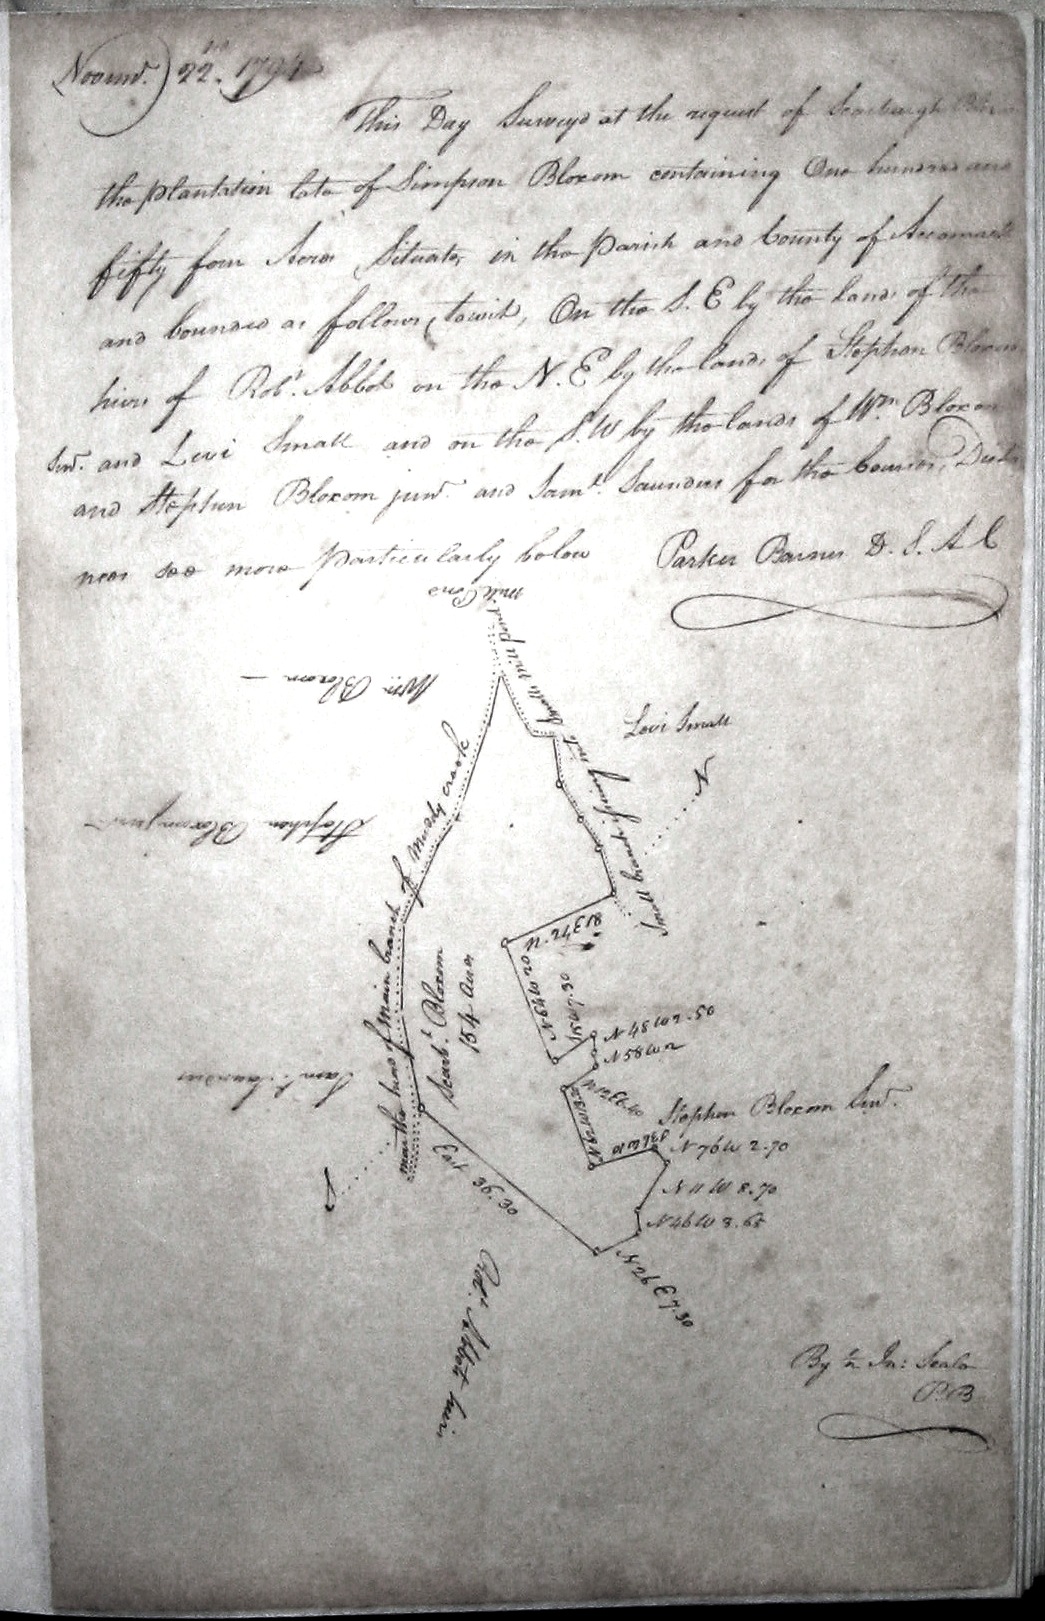 Novemr. 22nd. 1794
This Day Surveyd at the request of Scarburgh Bloxom
the plantation late of Simpson Bloxom containing One hundred and
fifty four Acres Situate, in the Parish and County of Accomack
and bounded as follows, towit, On the S. E by the lands of the
heirs of Robt. Abbot on the N. E by the lands of Stephen Bloxom
Senr. and Levi Small and on the S. W by the lands of Wm. Bloxom
and Stephen Bloxom junr. and Saml. Saunders for the Courses, Dista
nces see more particularly below
Parker Barnes D. S. A C
Mill Pond
Wm. Bloxom
Levi Small
N
Small branch issuing into Smalls mill pond
Stephen Bloxom junr
near the head of main branch of Muddy creek
Scarbh. Bloxom
154 Acres
N 64 W 20
S 15 W 7.30
N 48 W 2.50
N 58 W 2
Stephen Bloxom Senr.
Saml. Saunders
N 76 W 2.70
N 11 W 8.70
N 46 W 3.68
N 26 E 7.30
East 36.30
S
Robt. Abbot heirs
By In: Scale
P. B